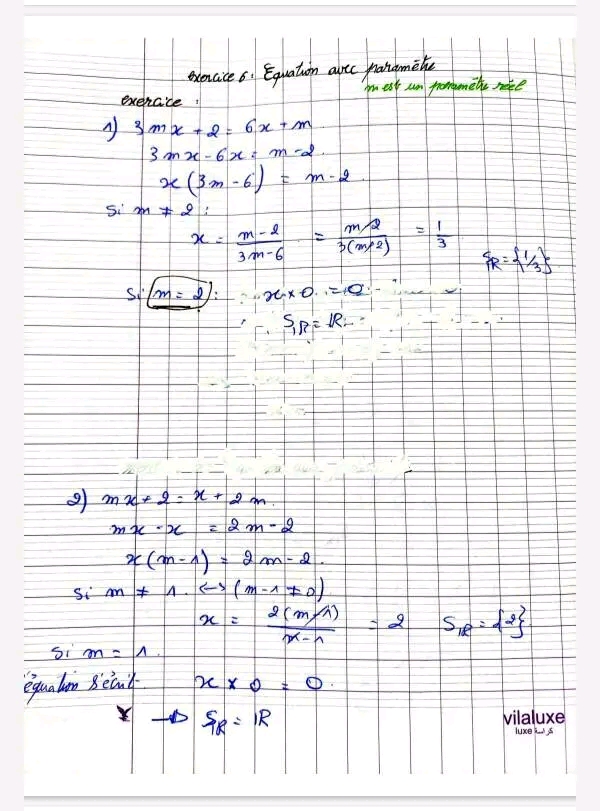 exercice 6 : Equation avec paramètre
m est un paramètre réel
exercice :
1) 3mx + 2 = 6x + m
3mx - 6x = m - 2
x(3m - 6) = m - 2
Si m ≠ 2 :
x = (m - 2)/(3m - 6) = (m - 2)/(3(m - 2)) = 1/3
S_IR = {1/3}
Si m = 2 : x × 0 = 0
S_IR = IR
2) mx + 2 = x + 2m
mx - x = 2m - 2
x(m - 1) = 2m - 2
Si m ≠ 1 <-> (m - 1 ≠ 0)
x = 2(m - 1)/(x - 1) = 2 S_IR = {2}
Si m = 1
équation s'écrit x × 0 = 0
→ S_IR = IR
vilaluxe
luxe كراسة